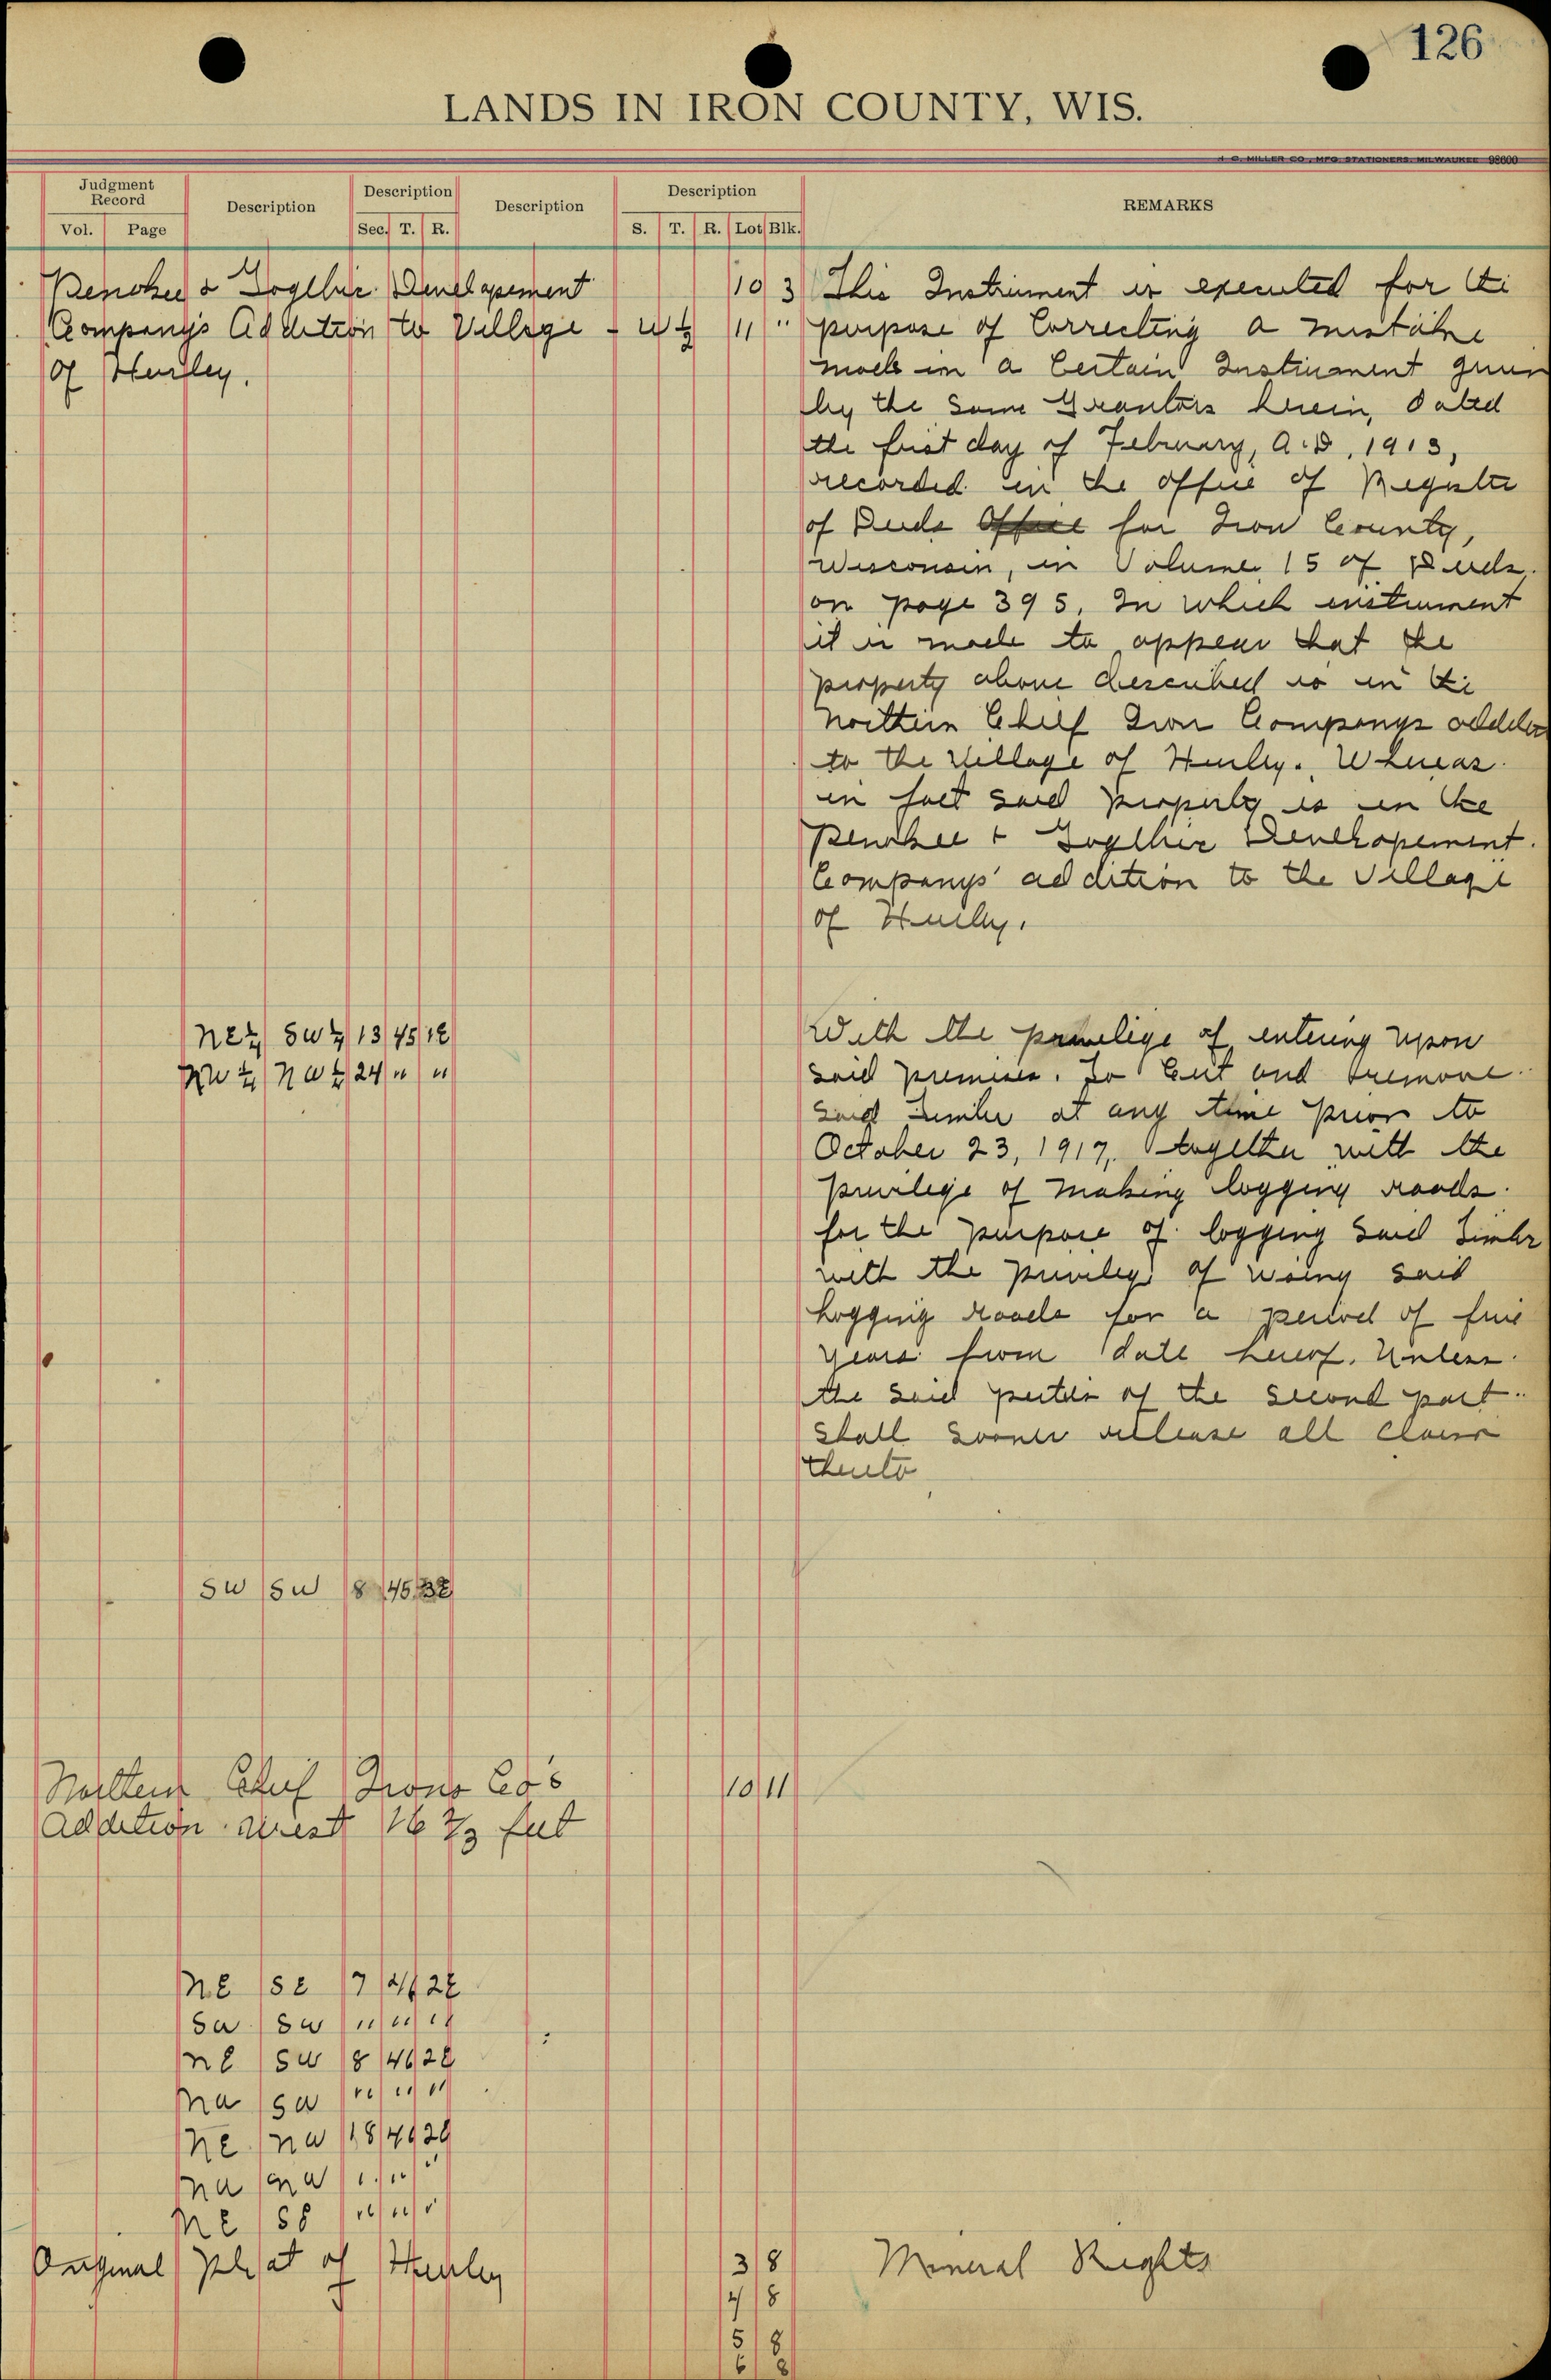 126
LANDS IN IRON COUNTY, WIS.
H. C. MILLER CO., MFG. STATIONERS, MILWAUKEE 98600
Judgment Record Description Description Description Description REMARKS
Vol. Page Sec. T. R. S. T. R. Lot Blk.
Penokee & Gogebic Developement 10 3 This Instrument is executed for the
Company's Addition to Village - W ½ 11 " purpose of Correcting a mistake
of Hurley. made in a Certain Instrument given
by the Same Grantors herein, dated
the first day of February, A.D. 1913,
recorded in the office of Register
of Deeds Office for Iron County,
Wisconsin, in Volume 15 of Deeds,
on page 395, In which instrument
it is made to appear that the
property above described is in the
Northern Chief Iron Companys addition
to the Village of Hurley. Whereas
in fact said property is in the
Penokee & Gogebic Developement
Companys' addition to the Village
of Hurley.
NE¼ SW¼ 13 45 1E With the privelige of entering upon
NW¼ NW¼ 24 " " said premises. To Cut and remove
said timber at any time prior to
October 23, 1917, together with the
privilege of making logging roads
for the purpose of logging said Timber
with the privilege of using said
Logging roads for a period of five
years from date hereof. Unless
the said parties of the second part
shall sooner release all claim
thereto
SW SW 8 45
Northern Chief Iron Co's 10 11
Addition West 16 ⅔ feet
NE SE 7 2E
SW SW " " "
NE SW 8 46 2E
NW SW " " "
NE NW 18 46 2E
NW NW " " "
NE SE " " "
Original Plat of Hurley 3 8 Mineral Rights
4 8
5 8
6 8